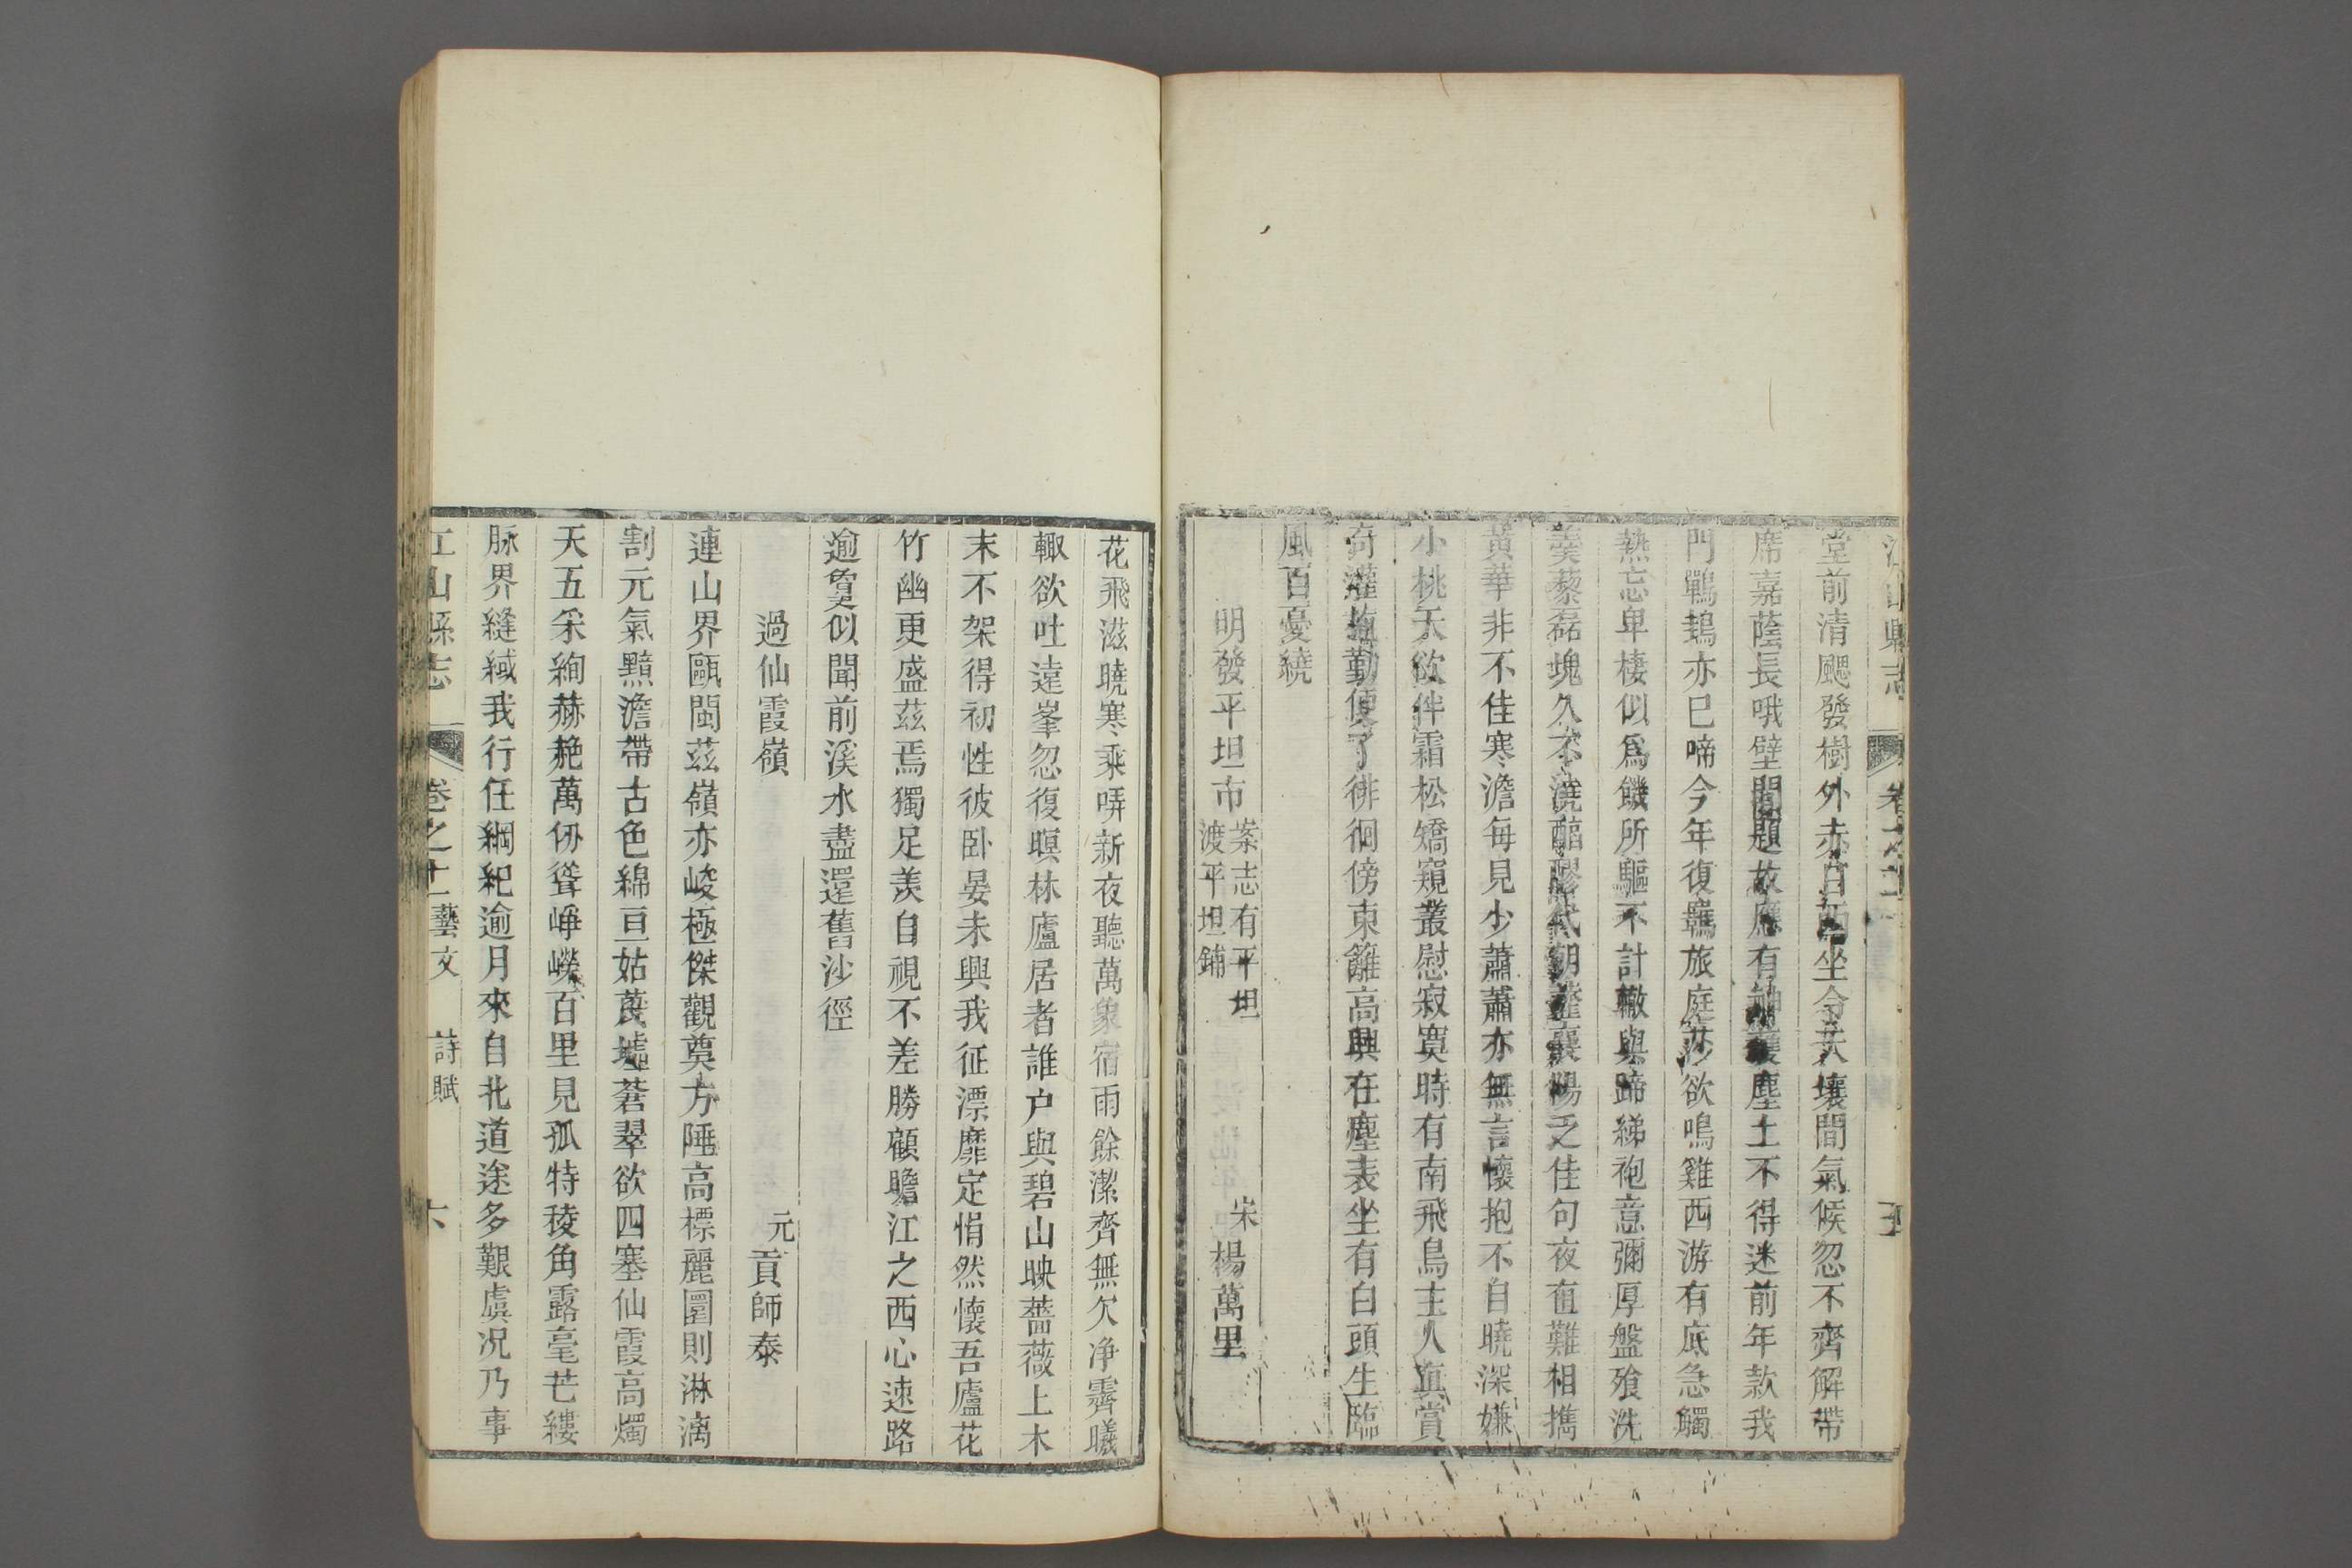 江山縣志
卷之十一
五
堂前清颸發樹外赤日西坐令天壤間氣候忽不齊解帶
席嘉蔭長哦壁間題故應有神護塵土不得迷前年款我
門鶗鴂亦已啼今年復羈旅庭莎欲鳴雞西游有底急觸
熱忘卑棲似爲饑所驅不計轍與蹄綈袍意彌厚盤飱洗
羹藜磊塊久不澆醧醪代朝虀襄陽乏佳句夜亱難相攜
黃華非不佳寒澹每見少蕭蕭亦無言懷抱不自曉深嫌
小桃夭欲伴霜松矯窺叢慰寂寞時有南飛鳥主人真賞
奇灌植勤便了徘徊傍東籬高興在塵表坐有白頭生臨
風百憂繞
明發平坦市 案志有平坦渡平坦鋪 宋楊萬里
花飛滋曉寒乘哢新夜聽萬象宿雨餘潔齊無欠淨霽曦
輙欲吐遠峯忽復暝林廬居者誰户與碧山映薔薇上木
末不架得初性彼卧晏未興我征漂靡定悁然懷吾廬花
竹幽更盛茲焉獨足羨自視不差勝顧瞻江之西心速路
逾敻似聞前溪水盡還舊沙徑
過仙霞嶺 元貢師泰
連山界甌閩茲嶺亦峻極傑觀奠方陲高標麗圜則淋漓
割元氣黮澹帶古色綿亘姑蔑墟蒼翠欲四塞仙霞高燭
天五采絢赫赩萬仞聳崢嶸百里見孤特稜角露毫芒縷
脉界縫緎我行任綱紀逾月來自北道途多艱虞况乃事
江山縣志
卷之十一藝文 詩賦
六